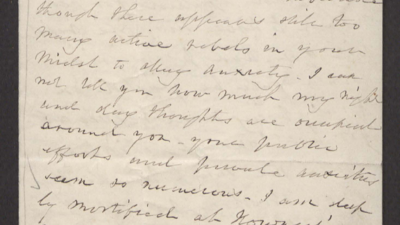 though there appears still too
many active rebels in your
midst to allay anxiety. I can
not tell you how much my night
and day thoughts are occupied
around you - your public
efforts and private anxieties
seem so numerous. I am deep
ly mortified at